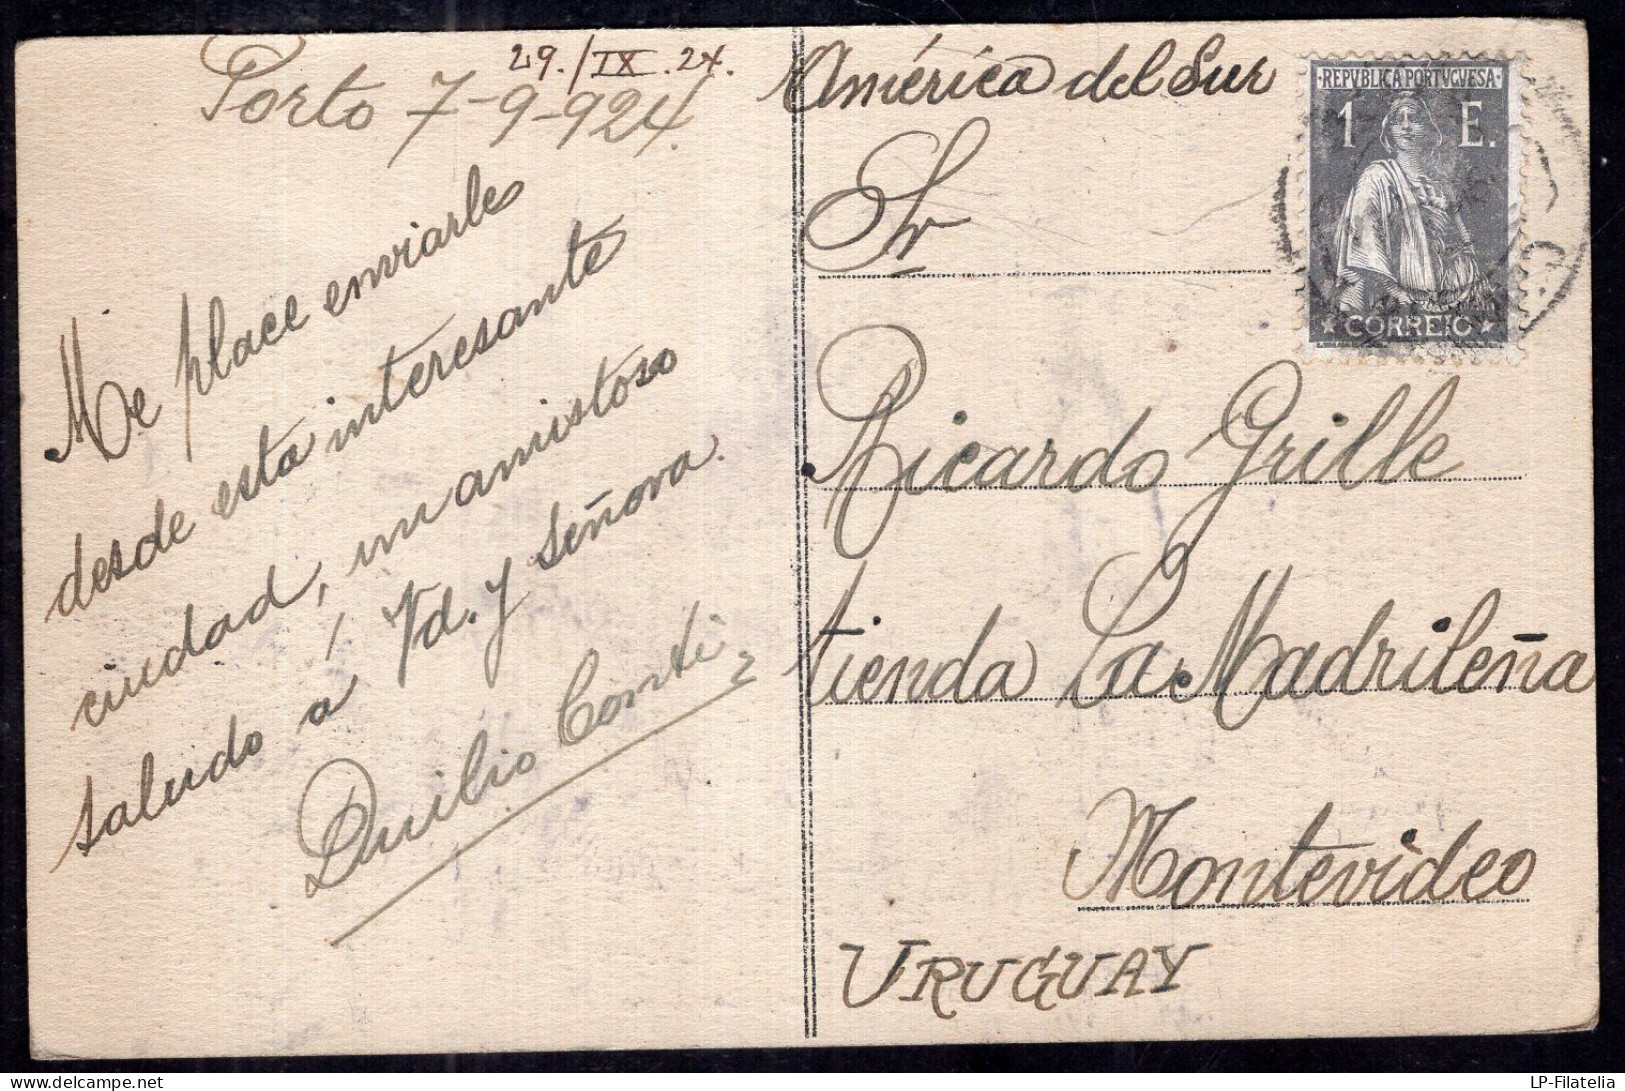 Porto 7-9-924.
29./IX.24.
Me place enviarle
desde esta interesante
ciudad, un amistoso
saludo a Vd. y Señora.
Duilio Conti
América del Sur
Sr
Ricardo Grille
tienda La Madrileña
Montevideo
URUGUAY
·REPVBLICA PORTVGVESA·
1 E.
CORREIO
LP-Filatelia